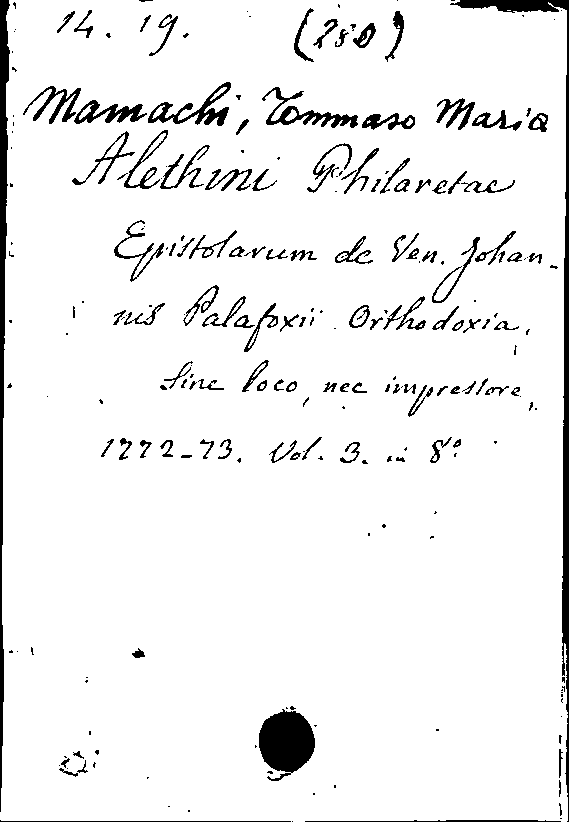 14. 19. (280)
Mamachi, Tommaso Maria
Alethini Philaretae
Epistolarum de Ven. Johan-
nis Palafoxii Orthodoxia,
Sine loco, nec impressore,
1772-73. Vol. 3. in 8º